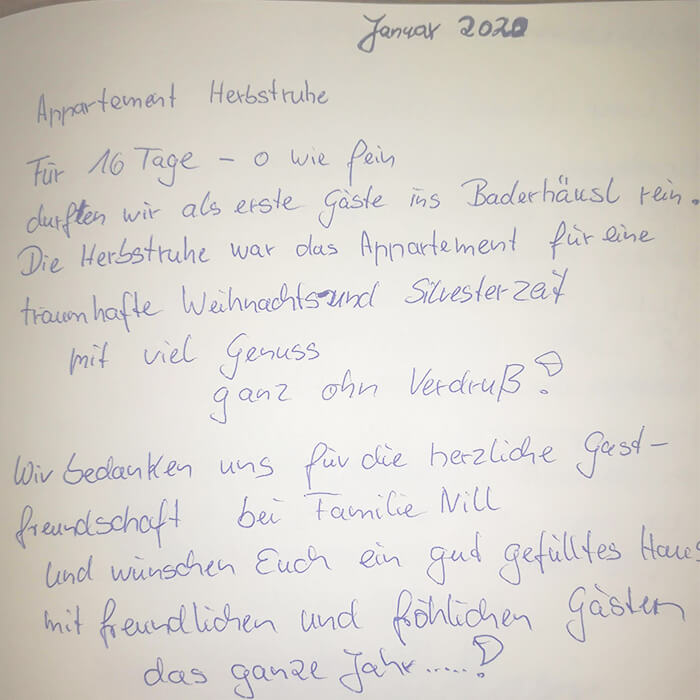 Januar 2020
Appartement Herbstruhe
Für 16 Tage – o wie fein
durften wir als erste Gäste ins Baderhäusl rein.
Die Herbstruhe war das Appartement für eine
traumhafte Weihnachts-und Silvesterzeit
mit viel Genuss
ganz ohn Verdruß!
Wir bedanken uns für die herzliche Gast-
freundschaft bei Familie Nill
und wünschen Euch ein gut gefülltes Haus
mit freundlichen und fröhlichen Gästen
das ganze Jahr.....!